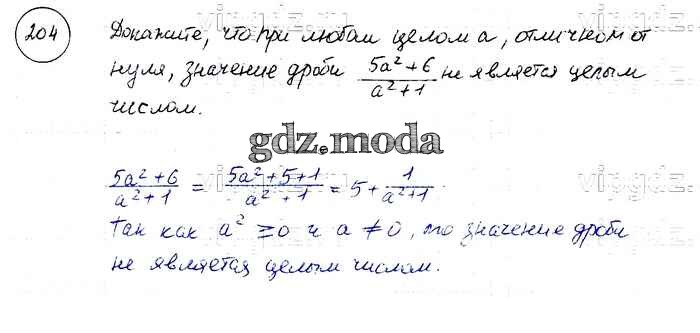 204
Докажите, что при любом целом a, отличном от
нуля, значение дроби (5a²+6)/(a²+1) не является целым
числом.
gdz.moda
(5a²+6)/(a²+1) = (5a²+5+1)/(a²+1) = 5 + 1/(a²+1)
Так как a² ≥ 0 и a ≠ 0, то значение дроби
не является целым числом.